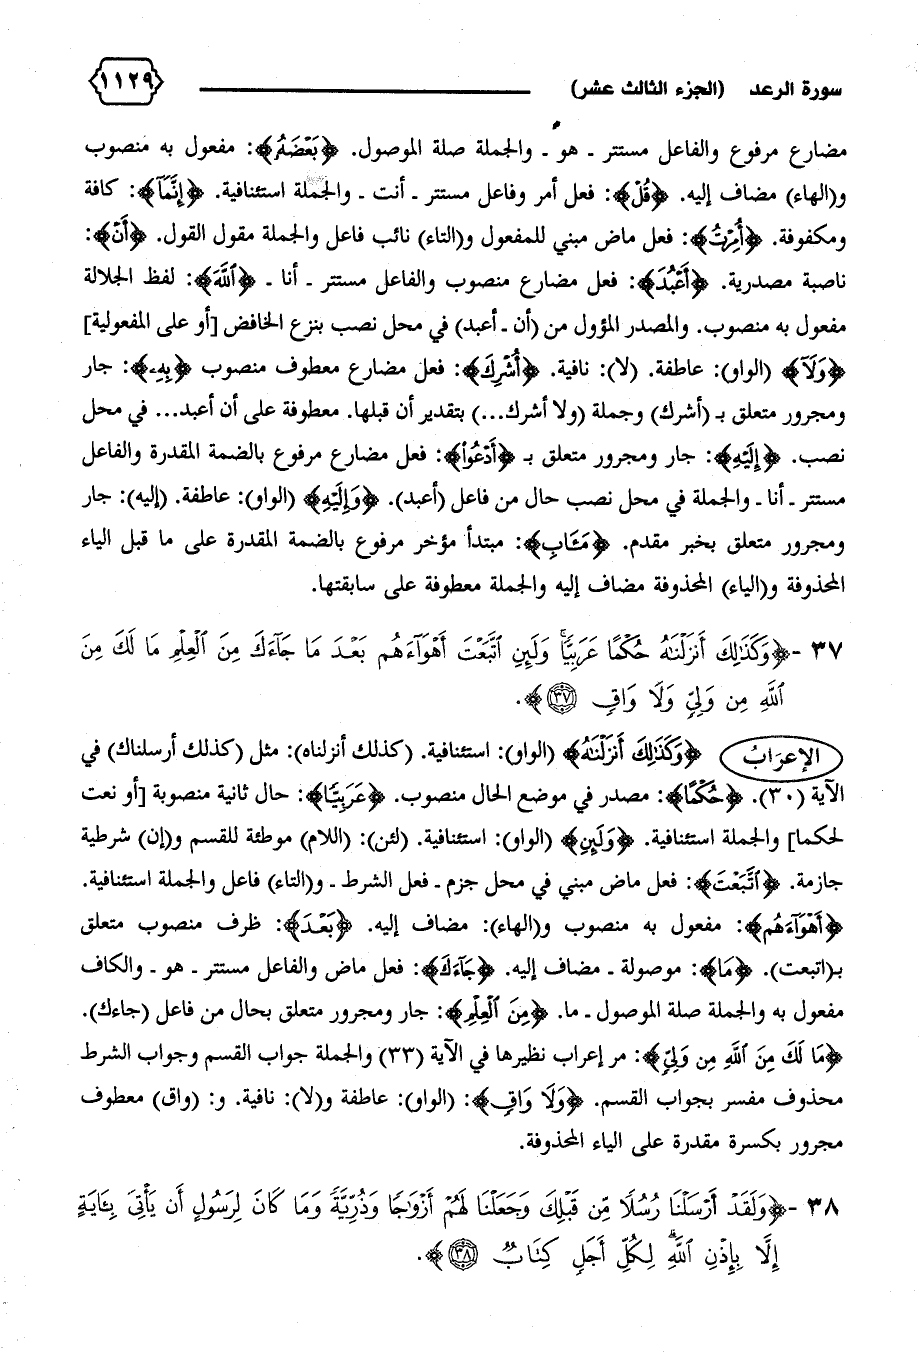 سورة الرعد (الجزء الثالث عشر) ١١٢٩
مضارع مرفوع والفاعل مستتر ـ هو ـ والجملة صلة الموصول. ﴿بَعْضَهُ﴾: مفعول به منصوب
و(الهاء) مضاف إليه. ﴿قُلْ﴾: فعل أمر وفاعل مستتر ـ أنت ـ والجملة استئنافية. ﴿إِنَّمَآ﴾: كافة
ومكفوفة. ﴿أُمِرْتُ﴾: فعل ماض مبني للمفعول و(التاء) نائب فاعل والجملة مقول القول. ﴿أَنْ﴾:
ناصبة مصدرية. ﴿أَعْبُدَ﴾: فعل مضارع منصوب والفاعل مستتر ـ أنا ـ ﴿ٱللَّهَ﴾: لفظ الجلالة
مفعول به منصوب. والمصدر المؤول من (أن ـ أعبد) في محل نصب بنزع الخافض [أو على المفعولية]
﴿وَلَآ﴾ (الواو): عاطفة. (لا): نافية. ﴿أُشْرِكَ﴾: فعل مضارع معطوف منصوب ﴿بِهِۦ﴾: جار
ومجرور متعلق بـ (أشرك) وجملة (ولا أشرك...) بتقدير أن قبلها. معطوفة على أن أعبد... في محل
نصب. ﴿إِلَيْهِ﴾: جار ومجرور متعلق بـ ﴿أَدْعُوا۟﴾: فعل مضارع مرفوع بالضمة المقدرة والفاعل
مستتر ـ أنا ـ والجملة في محل نصب حال من فاعل (أعبد). ﴿وَإِلَيْهِ﴾ (الواو): عاطفة. (إليه): جار
ومجرور متعلق بخبر مقدم. ﴿مَـَٔابِ﴾: مبتدأ مؤخر مرفوع بالضمة المقدرة على ما قبل الياء
المحذوفة و(الياء) المحذوفة مضاف إليه والجملة معطوفة على سابقتها.
٣٧ - ﴿وَكَذَٰلِكَ أَنزَلْنَٰهُ حُكْمًا عَرَبِيًّا ۚ وَلَئِنِ ٱتَّبَعْتَ أَهْوَآءَهُم بَعْدَ مَا جَآءَكَ مِنَ ٱلْعِلْمِ مَا لَكَ مِنَ
ٱللَّهِ مِن وَلِىٍّ وَلَا وَاقٍ ٣٧﴾.
الإعرَابُ ﴿وَكَذَٰلِكَ أَنزَلْنَٰهُ﴾ (الواو): استئنافية. (كذلك أنزلناه): مثل (كذلك أرسلناك) في
الآية (٣٠). ﴿حُكْمًا﴾: مصدر في موضع الحال منصوب. ﴿عَرَبِيًّا﴾: حال ثانية منصوبة [أو نعت
لحكما] والجملة استئنافية. ﴿وَلَئِنِ﴾ (الواو): استئنافية. (لئن): (اللام) موطئة للقسم و(إن) شرطية
جازمة. ﴿ٱتَّبَعْتَ﴾: فعل ماض مبني في محل جزم ـ فعل الشرط ـ و(التاء) فاعل والجملة استئنافية.
﴿أَهْوَآءَهُم﴾: مفعول به منصوب و(الهاء): مضاف إليه. ﴿بَعْدَ﴾: ظرف منصوب متعلق
بـ(اتبعت). ﴿مَا﴾: موصولة ـ مضاف إليه. ﴿جَآءَكَ﴾: فعل ماض والفاعل مستتر ـ هو ـ والكاف
مفعول به والجملة صلة الموصول ـ ما. ﴿مِنَ ٱلْعِلْمِ﴾: جار ومجرور متعلق بحال من فاعل (جاءك).
﴿مَا لَكَ مِنَ ٱللَّهِ مِن وَلِىٍّ﴾: مر إعراب نظيرها في الآية (٣٣) والجملة جواب القسم وجواب الشرط
محذوف مفسر بجواب القسم. ﴿وَلَا وَاقٍ﴾: (الواو): عاطفة و(لا): نافية. و: (واق) معطوف
مجرور بكسرة مقدرة على الياء المحذوفة.
٣٨ - ﴿وَلَقَدْ أَرْسَلْنَا رُسُلًا مِّن قَبْلِكَ وَجَعَلْنَا لَهُمْ أَزْوَٰجًا وَذُرِّيَّةً ۚ وَمَا كَانَ لِرَسُولٍ أَن يَأْتِىَ بِـَٔايَةٍ
إِلَّا بِإِذْنِ ٱللَّهِ ۗ لِكُلِّ أَجَلٍ كِتَابٌ ٣٨﴾.